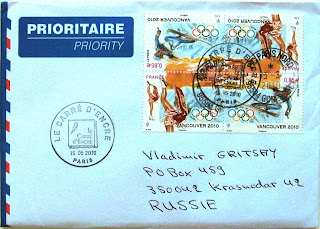 PRIORITAIRE
PRIORITY
VANCOUVER 2010
VANCOUVER 2010
0,85€
FRANCE
VANCOUVER 2010
VANCOUVER 2010
LE CARRÉ D'ENCRE
le
Carré
d'Encre
15 05 2010
PARIS
Vladimir GRITSAY
PO Box 459
350042 Krasnodar 42
RUSSIE